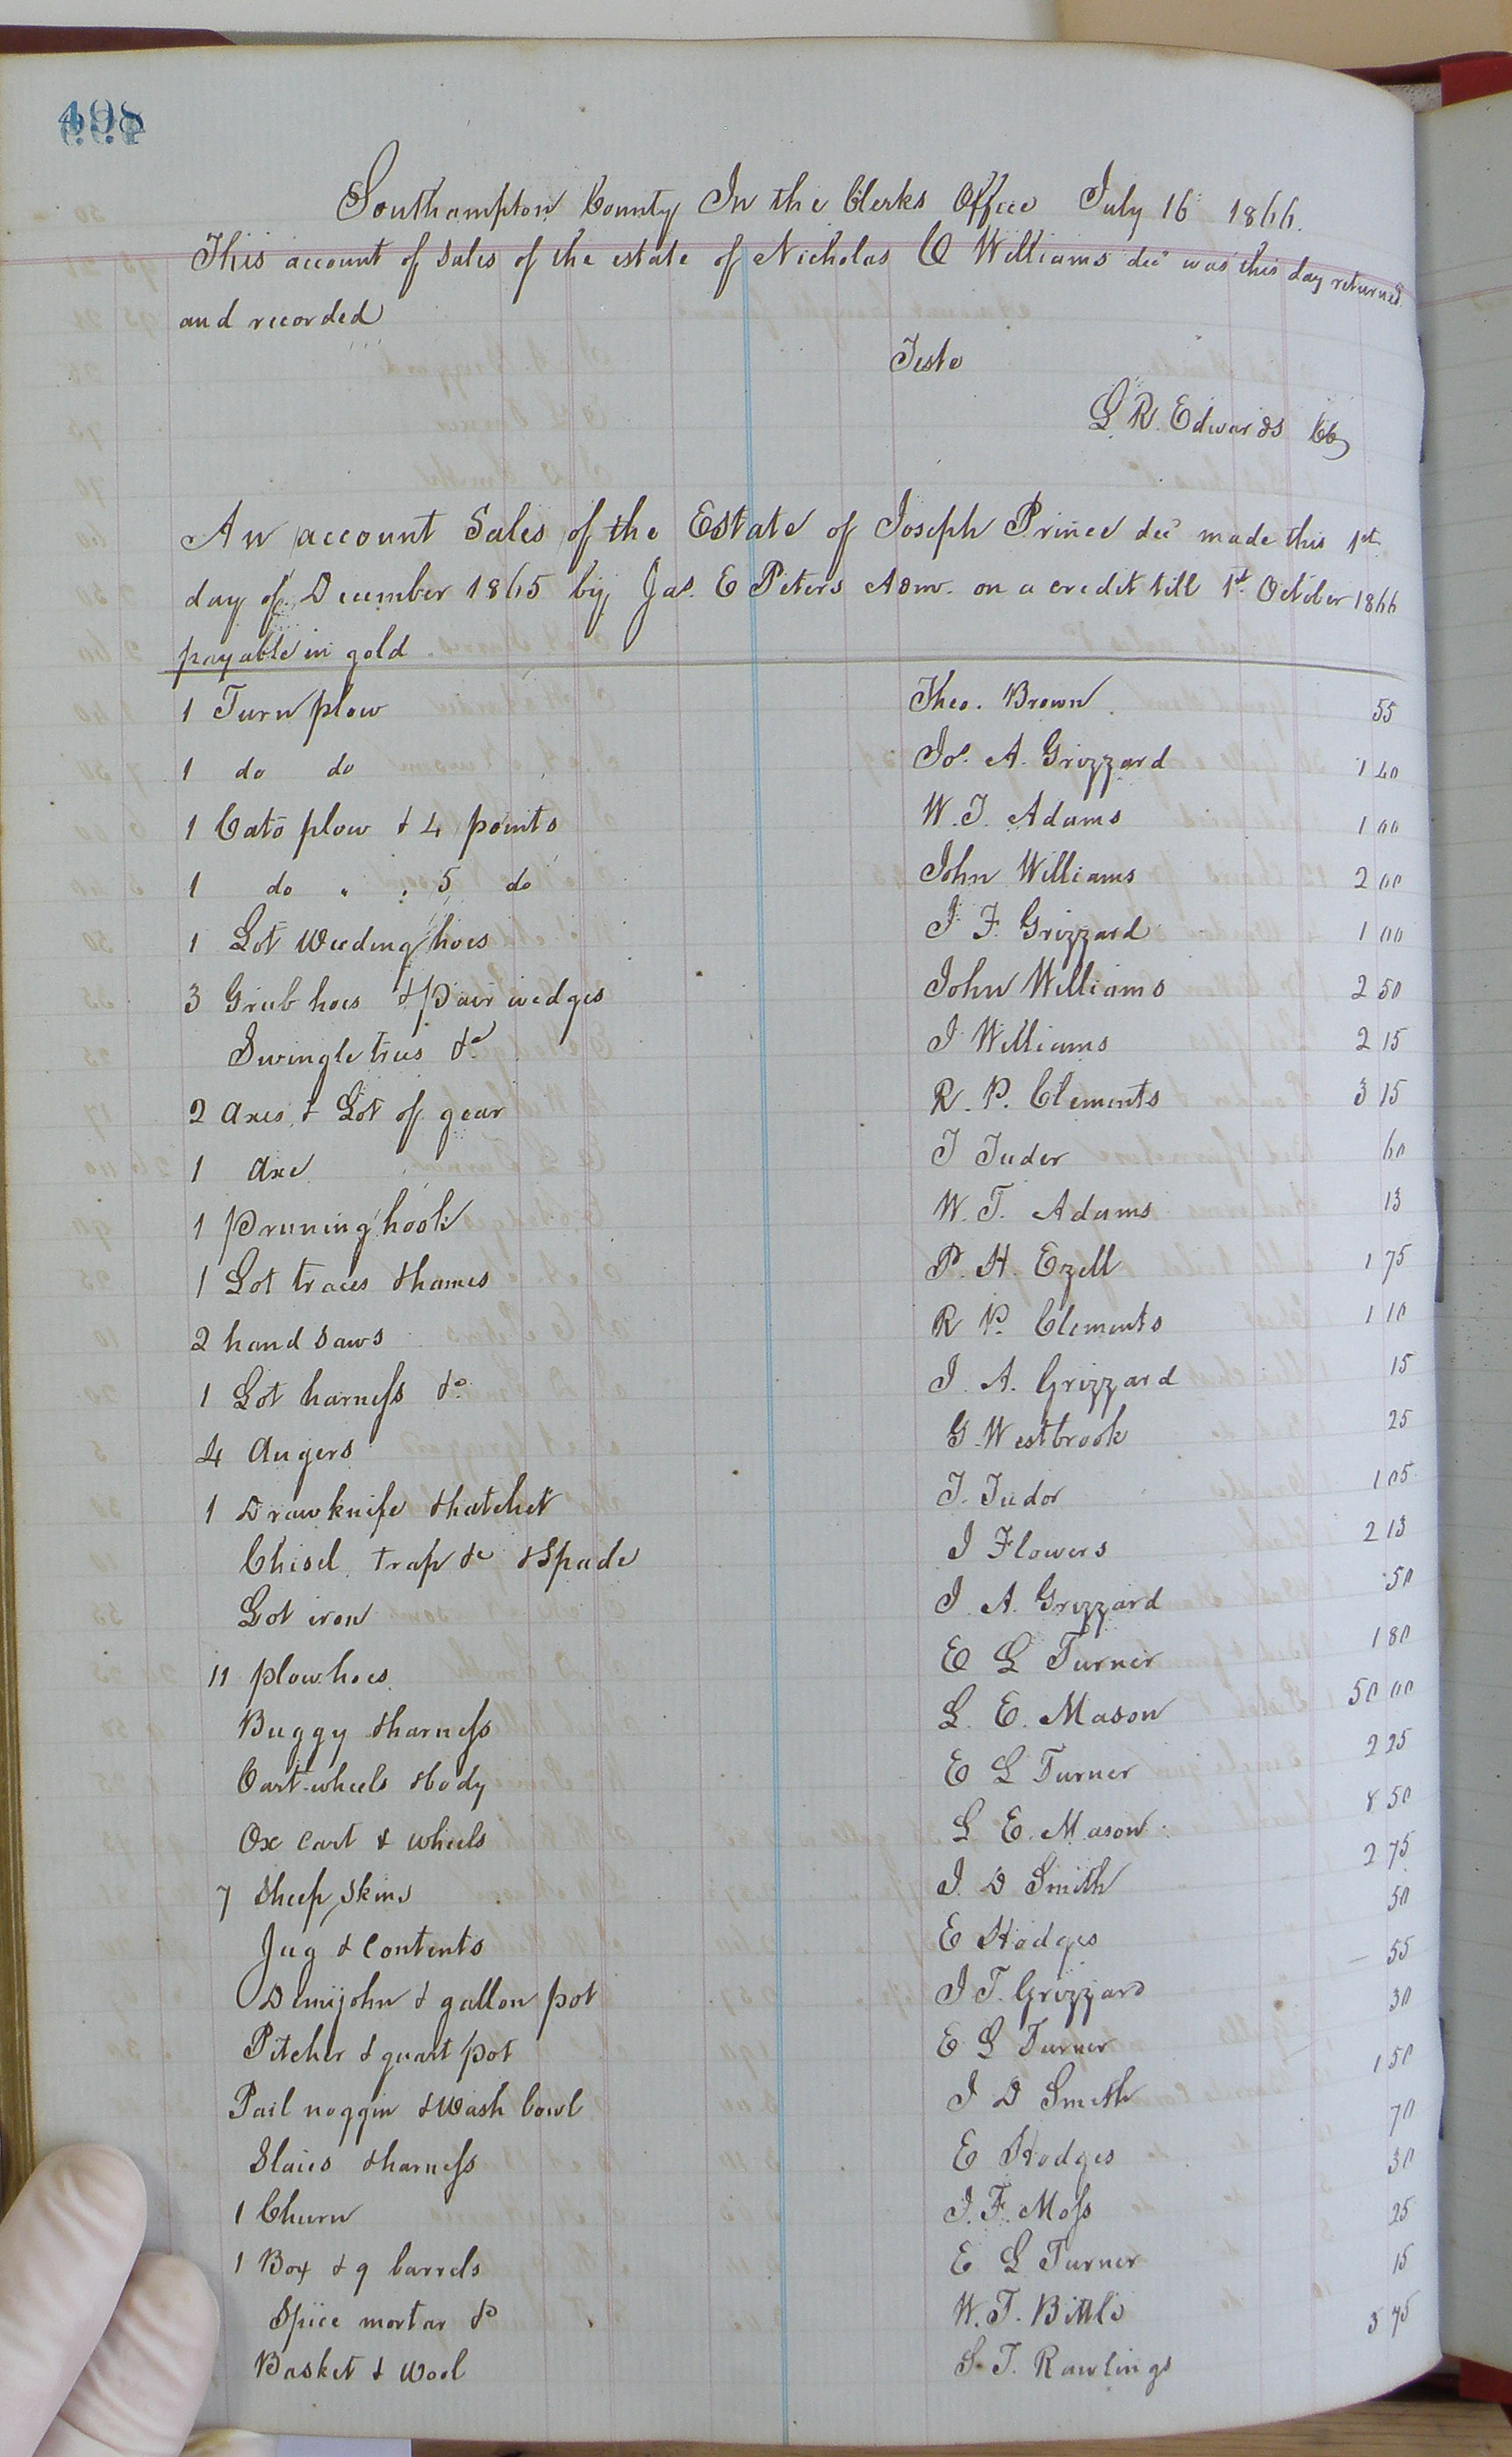 498
Southampton County In the Clerks Office July 16 1866.
This account of Sales of the estate of Nicholas C Williams decd was this day returned
and recorded
Teste
L R. Edwards CC
An account Sales of the Estate of Joseph Prince decd made this 1st
day of December 1865 by Jas. E Peters Admr. on a credit till 1st October 1866
payable in gold
1 Turn plow Theo. Brown 55
1 do do Jos. A. Grizzard 1 40
1 Cato plow & 4 points W. J. Adams 1 00
1 do " : 5 do John Williams 2 00
1 Lot Weeding hoes J. F. Grizzard 1 00
3 Grub hoes & pair wedges John Williams 2 50
Swingletrees &c J Williams 2 15
2 axes & Lot of gear R. P. Clements 3 15
1 axe J Tudor 60
1 pruning hook W. T. Adams 13
1 Lot traces & hames P. H. Ezell 1 75
2 hand saws R P. Clements 1 10
1 Lot harness &c J. A. Grizzard 15
4 augers G. Westbrook 25
1 Drawknife & hatchet J. Tudor 1 05
Chisel, trap &c & Spade J Flowers 2 13
Lot iron J. A. Grizzard 50
11 plow hoes E L Turner 1 80
Buggy & harness L. E. Mason 50 00
Cart-wheels & body E L Turner 2 25
Ox cart & wheels L E. Mason 8 50
7 Sheep Skins J. D Smith 2 75
Jug & Contents E Hodges 50
Demijohn & gallon pot J T. Grizzard 55
Pitcher & quart pot E L Turner 30
Pail noggin & Wash bowl J D Smith 1 50
Slaies & harness E Hodges 70
1 Churn J. F. Moss 30
1 Box & 9 barrels E L Turner 25
Spice mortar &c W. T. Bittle 15
Basket & Wool S. J. Rawlings 3 75